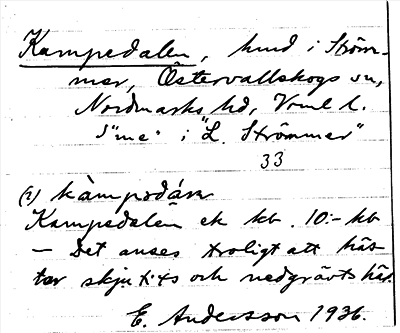 Kampedalen, hmd i Ström-
mer, Östervallskogs sn,
Nordmarks hd, Vrml l.
S"me" i "L. Strömmer"
33
(2) kàmpədáɽn
Kampedalen ek kb. 10:- kb
— Det anses troligt att häs-
tar skjutits och nedgrävts här.
E. Andersson 1936.